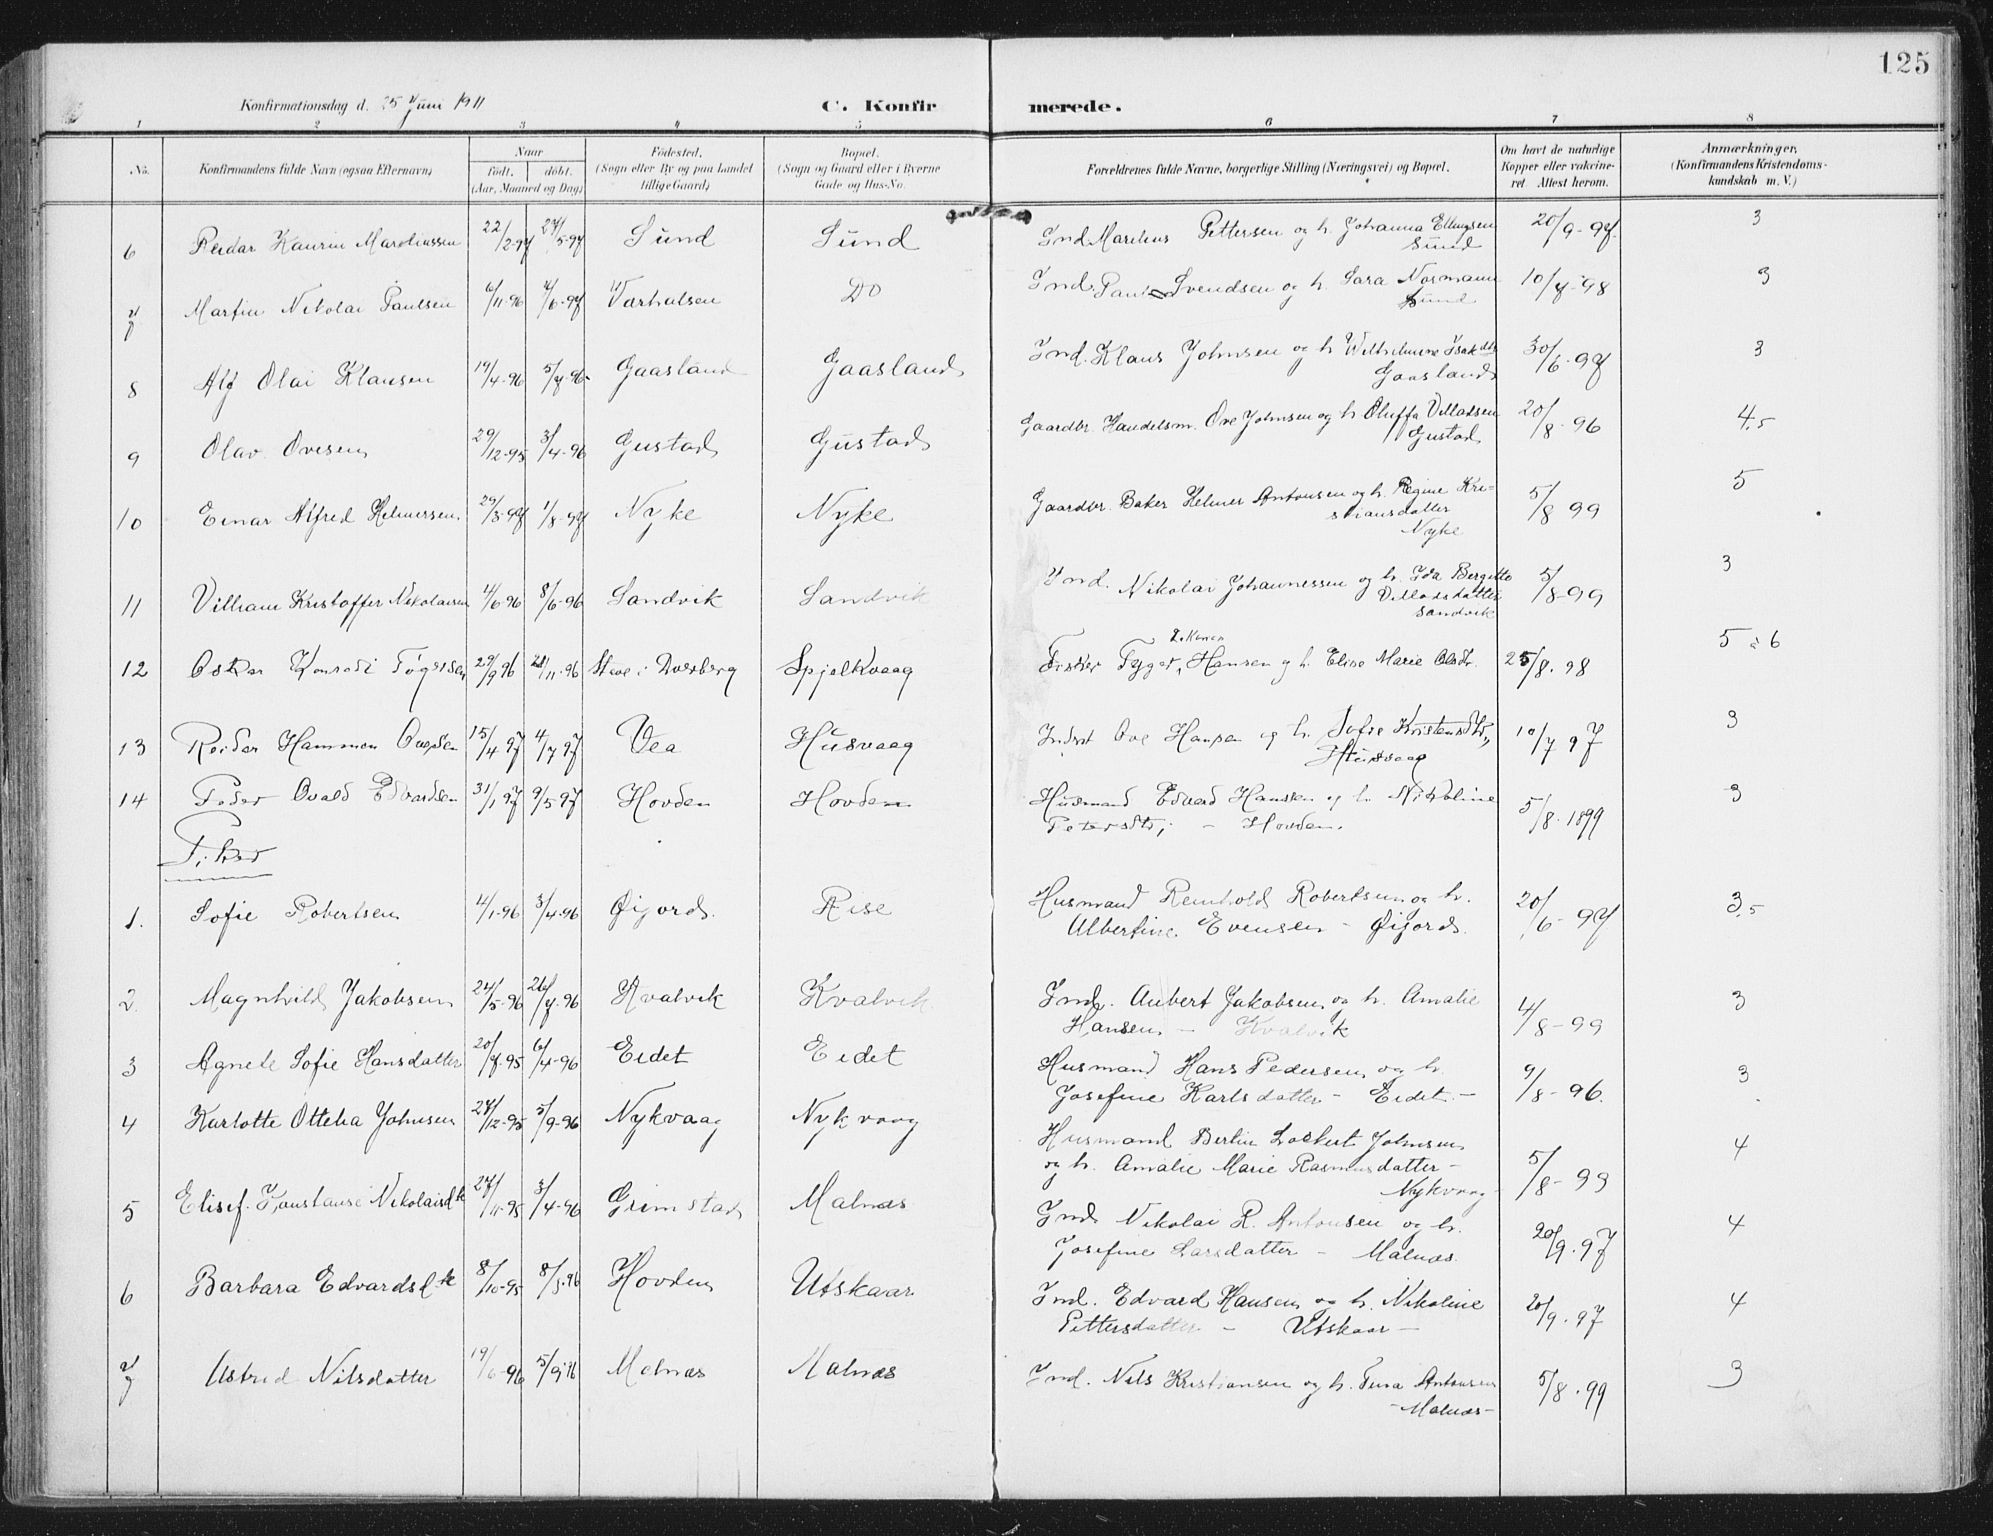 125
Konfirmationsdag d. 25 Juni 1911 C. Konfir merede.
1 2 3 4 5 6 7 8
No. Konfirmandens fulde Navn (ogsaa Efternavn) Naar født. døbt. (Aar, Maaned og Dag) Fødested. (Sogn eller By og paa Landet tillige Gaard) Bopæl. (Sogn og Gaard eller i Byerne Gade og Hus-No. Forældrenes fulde Navne, borgerlige Stilling (Næringsvei) og Bopæl. Om havt de naturlige Kopper eller vakcineret Attest herom. Anmærkninger, (Konfirmandens Kristendomskundskab m. V.)
6 Reidar Kaurin Mareliussen 22/2-97 27/5-97 Sund Sund Ind. Marelius Pettersen og h. Johanna Ellingsen 20/9-97. 3
Sund
7 Martin Nikolai Paulsen 6/11-96 4/6-97 Værhulsen Do Ind. Paul Svendsen og h. Sara Normann 10/7-98 3
Sund
8 Alf Olai Klausen 19/4-96 5/7-96- Gaasland Gaasland Ind. Klaus Johnsen og h. Wilhelmine Isakdtr 30/6-97 3
Gaasland
9 Olav Ovesen 29/12-95 3/4-96 Gustad Gustad Gaardbr. Handelsm. Ove Johnsen og h. Oluffa Villadsen 20/8-96 4,5
Gustad
10 Einar Alfred Helmersen. 29/3-97 1/8-97 Nyke Nyke Gaardbr. Baker Helmer Antonsen og h. Regine Kri- 5/8 99 5
stiansdatter
Nyke
11 Villiam Kristoffer Nikolaisen 4/6 96 8/6-96 Sandvik Sandvik Ind. Nikolai Johannessen og h. Ida Bergitte 5/8-99 3
Villadsdatter
Sandvik
12 Oskar Konradi Tøgersen 29/9 96 21/11-96 Stave i Dverberg Spjelkvaag Fisker Tøger Hansen og h. Elise Marie Olsdtr. 25/8. 98 5 à 6
13 Reidar Hammon Ovesen 15/4 97 4/7 97 Vea Husvaag Inderst Ove Hansen og h. Sofie Kristensdtr, 10/7 97 3
Husvaag
14 Peder Ovald Edvardsen 31/1 97 9/5 97 Hovden Hovden Husmand Edvard Hansen og h. Nikoline 5/8. 1899 3
Petersdtr, - Hovden.
Piker
1. Sofie Robertsen 4/1-96 3/4-96 Øijord. Rise Husmand Reinhold Robertsen og h. 20/6-97 3,5
Albertine Evensen - Øijord.
2. Magnhild Jakobsen 24/5-96 26/7-96 Kvalvik Kvalvik Ind. Aubert Jakobsen og h. Amalie 4/8-99 3
Hansen - Kvalvik
3 Agnete Sofie Hansdatter 20/7-95 6/4-96 Eidet Eidet Husmand Hans Pedersen og h. 9/8-96. 3
Josefine Karlsdatter - Eidet -
4 Karlotte Ottelia Johnsen 27/12-95 5/9-96 Nykvaag Nykvaag Husmand Bertin Lockert Johnsen 5/8-99 4
og h. Amalie Marie Rasmusdatter -
Nykvaag -
5 Elisef. Konstanse Nikolaisdtr 27/11-95 3/4-96 Grimstad Malnæs Ind. Nikolai R. Antonsen og h. 20/9.97 4
Josefine Larsdatter - Malnæs.
6 Barbara Edvardsdtr 8/10-95 8/3-96 Hovden Utskaar Ind. Edvard Hansen og h. Nikoline 20/9.97 4
Pettersdatter - Utskaar -
7 Astrid Nilsdatter 19/6-96 5/9 96 Malnæs Malnæs Ind. Nils Kristiansen og h. Tina Antonsen 5/8.99 3
- Malnæs -